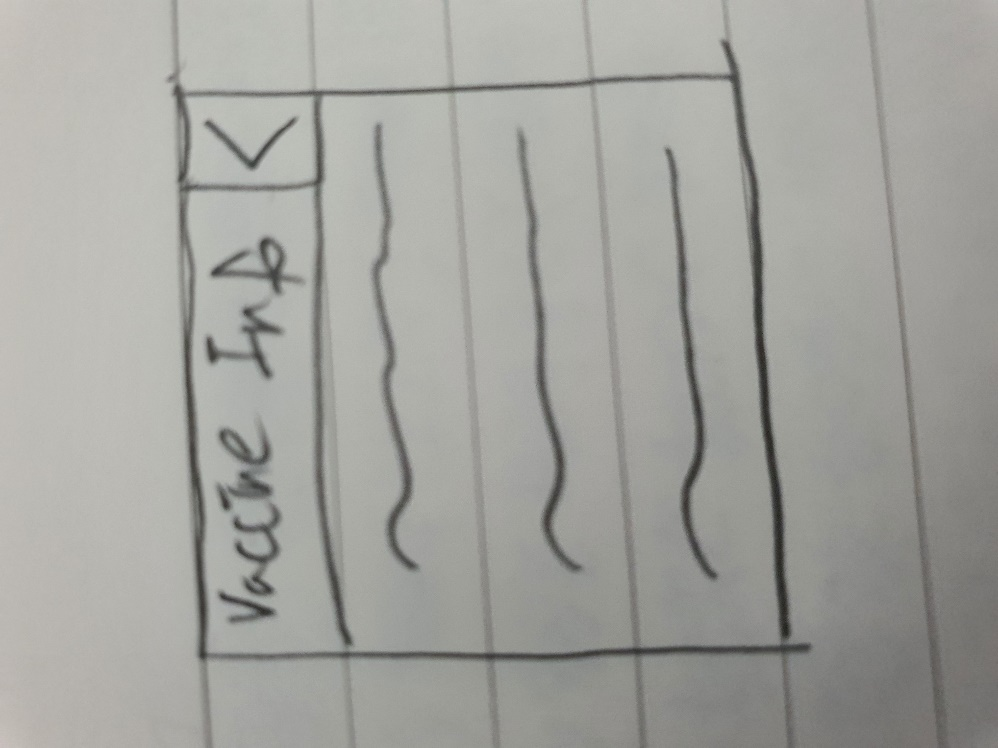 Vaccine Info